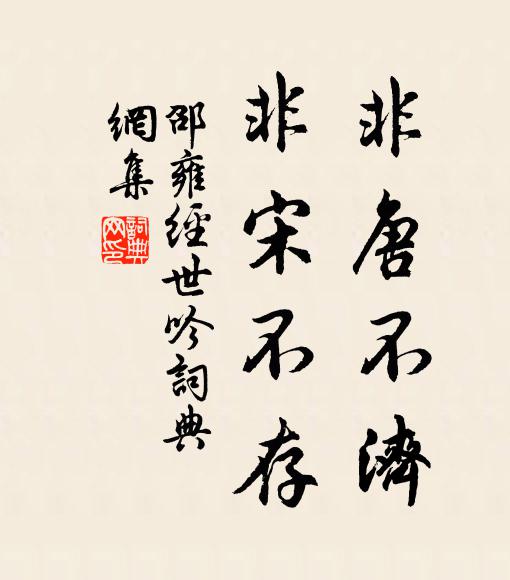 非唐不濟
非宋不存
邵雍經世吟詞典
網集
詞典
网印